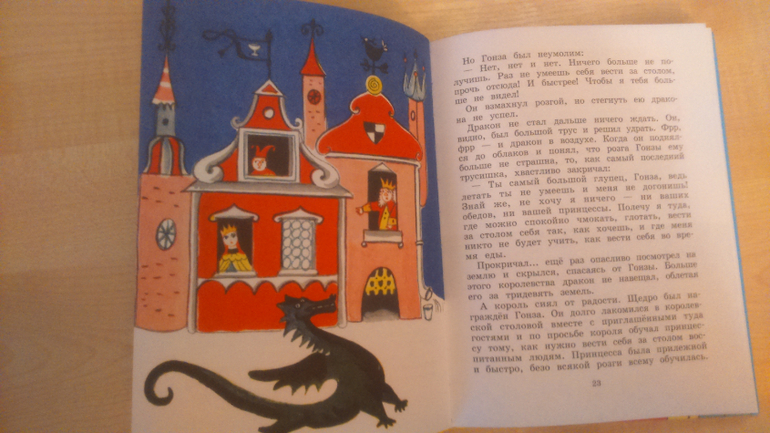 Но Гонза был неумолим:
— Нет, нет и нет. Ничего больше не по-
лучишь. Раз не умеешь себя вести за столом,
прочь отсюда! И быстрее! Чтобы я тебя боль-
ше не видел!
Он взмахнул розгой, но стегнуть ею драко-
на не успел.
Дракон не стал дальше ничего ждать. Он,
видно, был большой трус и решил удрать. Фрр,
фрр — и дракон в воздухе. Когда он поднял-
ся до облаков и понял, что розга Гонзы ему
больше не страшна, то, как самый последний
трусишка, хвастливо закричал:
— Ты самый большой глупец, Гонза, ведь
летать ты не умеешь и меня не догонишь!
Знай же, не хочу я ничего — ни ваших
обедов, ни вашей принцессы. Полечу я туда,
где можно спокойно чмокать, глотать, вести
за столом себя так, как хочешь, и где меня
никто не будет учить, как вести себя во вре-
мя еды.
Прокричал... ещё раз опасливо посмотрел на
землю и скрылся, спасаясь от Гонзы. Больше
этого королевства дракон не навещал, облетая
его за тридевять земель.
А король сиял от радости. Щедро был на-
граждён Гонза. Он долго лакомился в королев-
ской столовой вместе с приглашёнными туда
гостями и по просьбе короля обучал принцес-
су тому, как нужно вести себя за столом вос-
питанным людям. Принцесса была прилежной
и быстро, безо всякой розги всему обучилась.
23